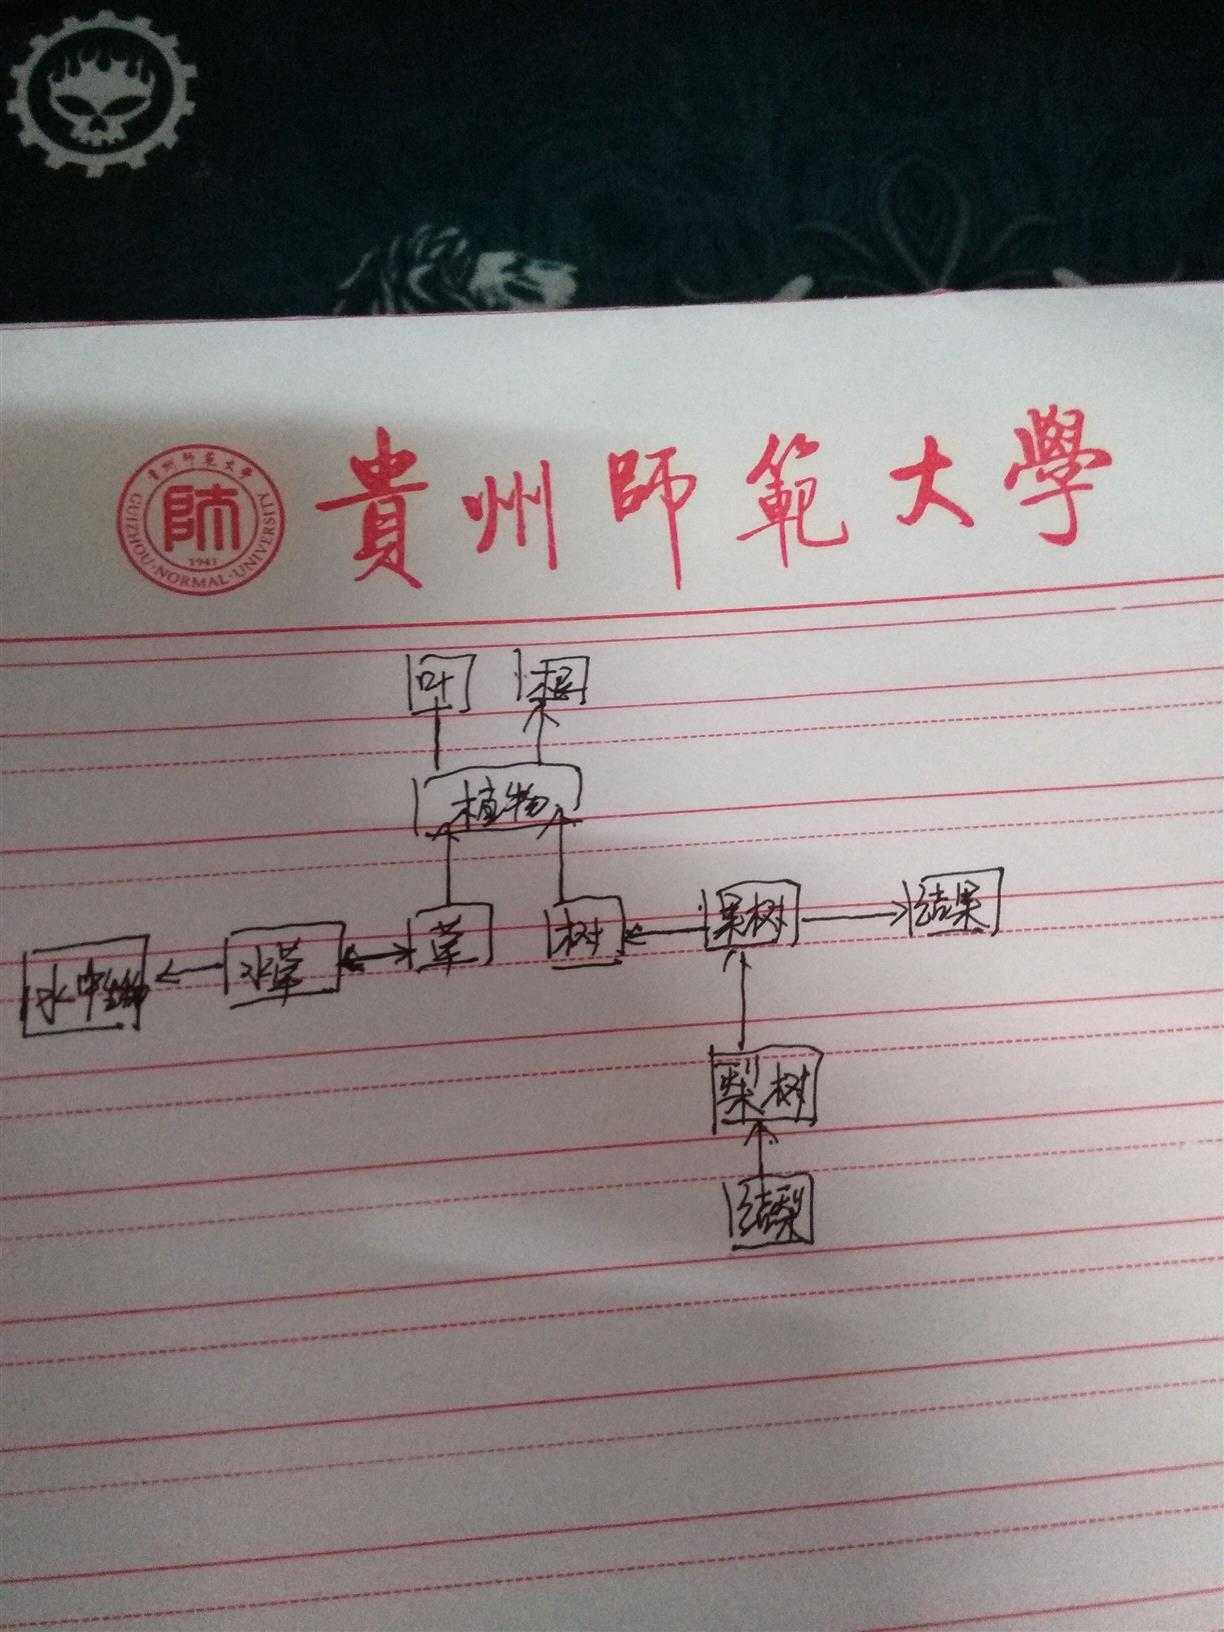 貴州師範大學
貴州師範大學
師
1941
GUIZHOU·NORMAL·UNIVERSITY
叶 根
植物
草 树 果树 结果
水草
梨树
结梨